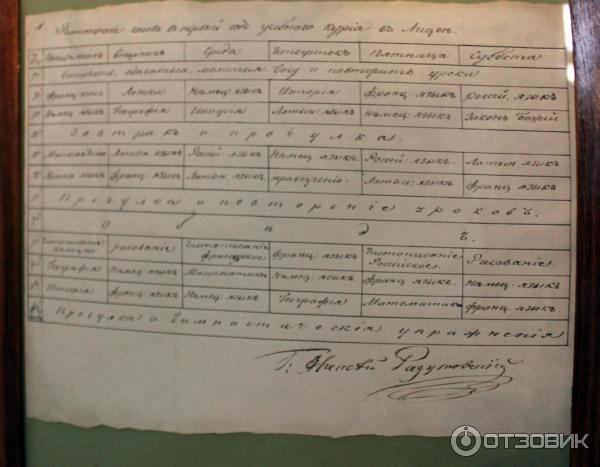 Расписаніе часовъ въ первый годъ учебнаго курса въ Лицеѣ.
Понедѣльникъ Вторникъ Среда Четвертокъ Пятница Суббота
Вставать, одѣваться, молиться Богу и повторить уроки
Франц: языкъ Логика Намец: языкъ Исторія Франц: языкъ Россій. языкъ
Намец: языкъ Географія Исторія Латин: языкъ Намец: языкъ Законъ Божій
Завтракъ и прогулка.
Математика Латин: языкъ Россій: языкъ Намец: языкъ. Россій: языкъ. Латин: языкъ
Латин: языкъ Франц: языкъ. Латин: языкъ. нравоученіе. Латин: языкъ. Франц: языкъ
Прогулка и повтореніе уроковъ.
Обѣдъ.
Чистописаніе рисованіе Чистописаніе французское Франц: языкъ Чистописаніе Россійское. Рисованіе.
Географія Намец: языкъ Математика Намец: языкъ. Франц: языкъ. Намец: языкъ.
Исторія Франц: языкъ Намец: языкъ Географія Математика Франц: языкъ.
Прогулка и Гимнастическія упражненія
ОТЗОВИК